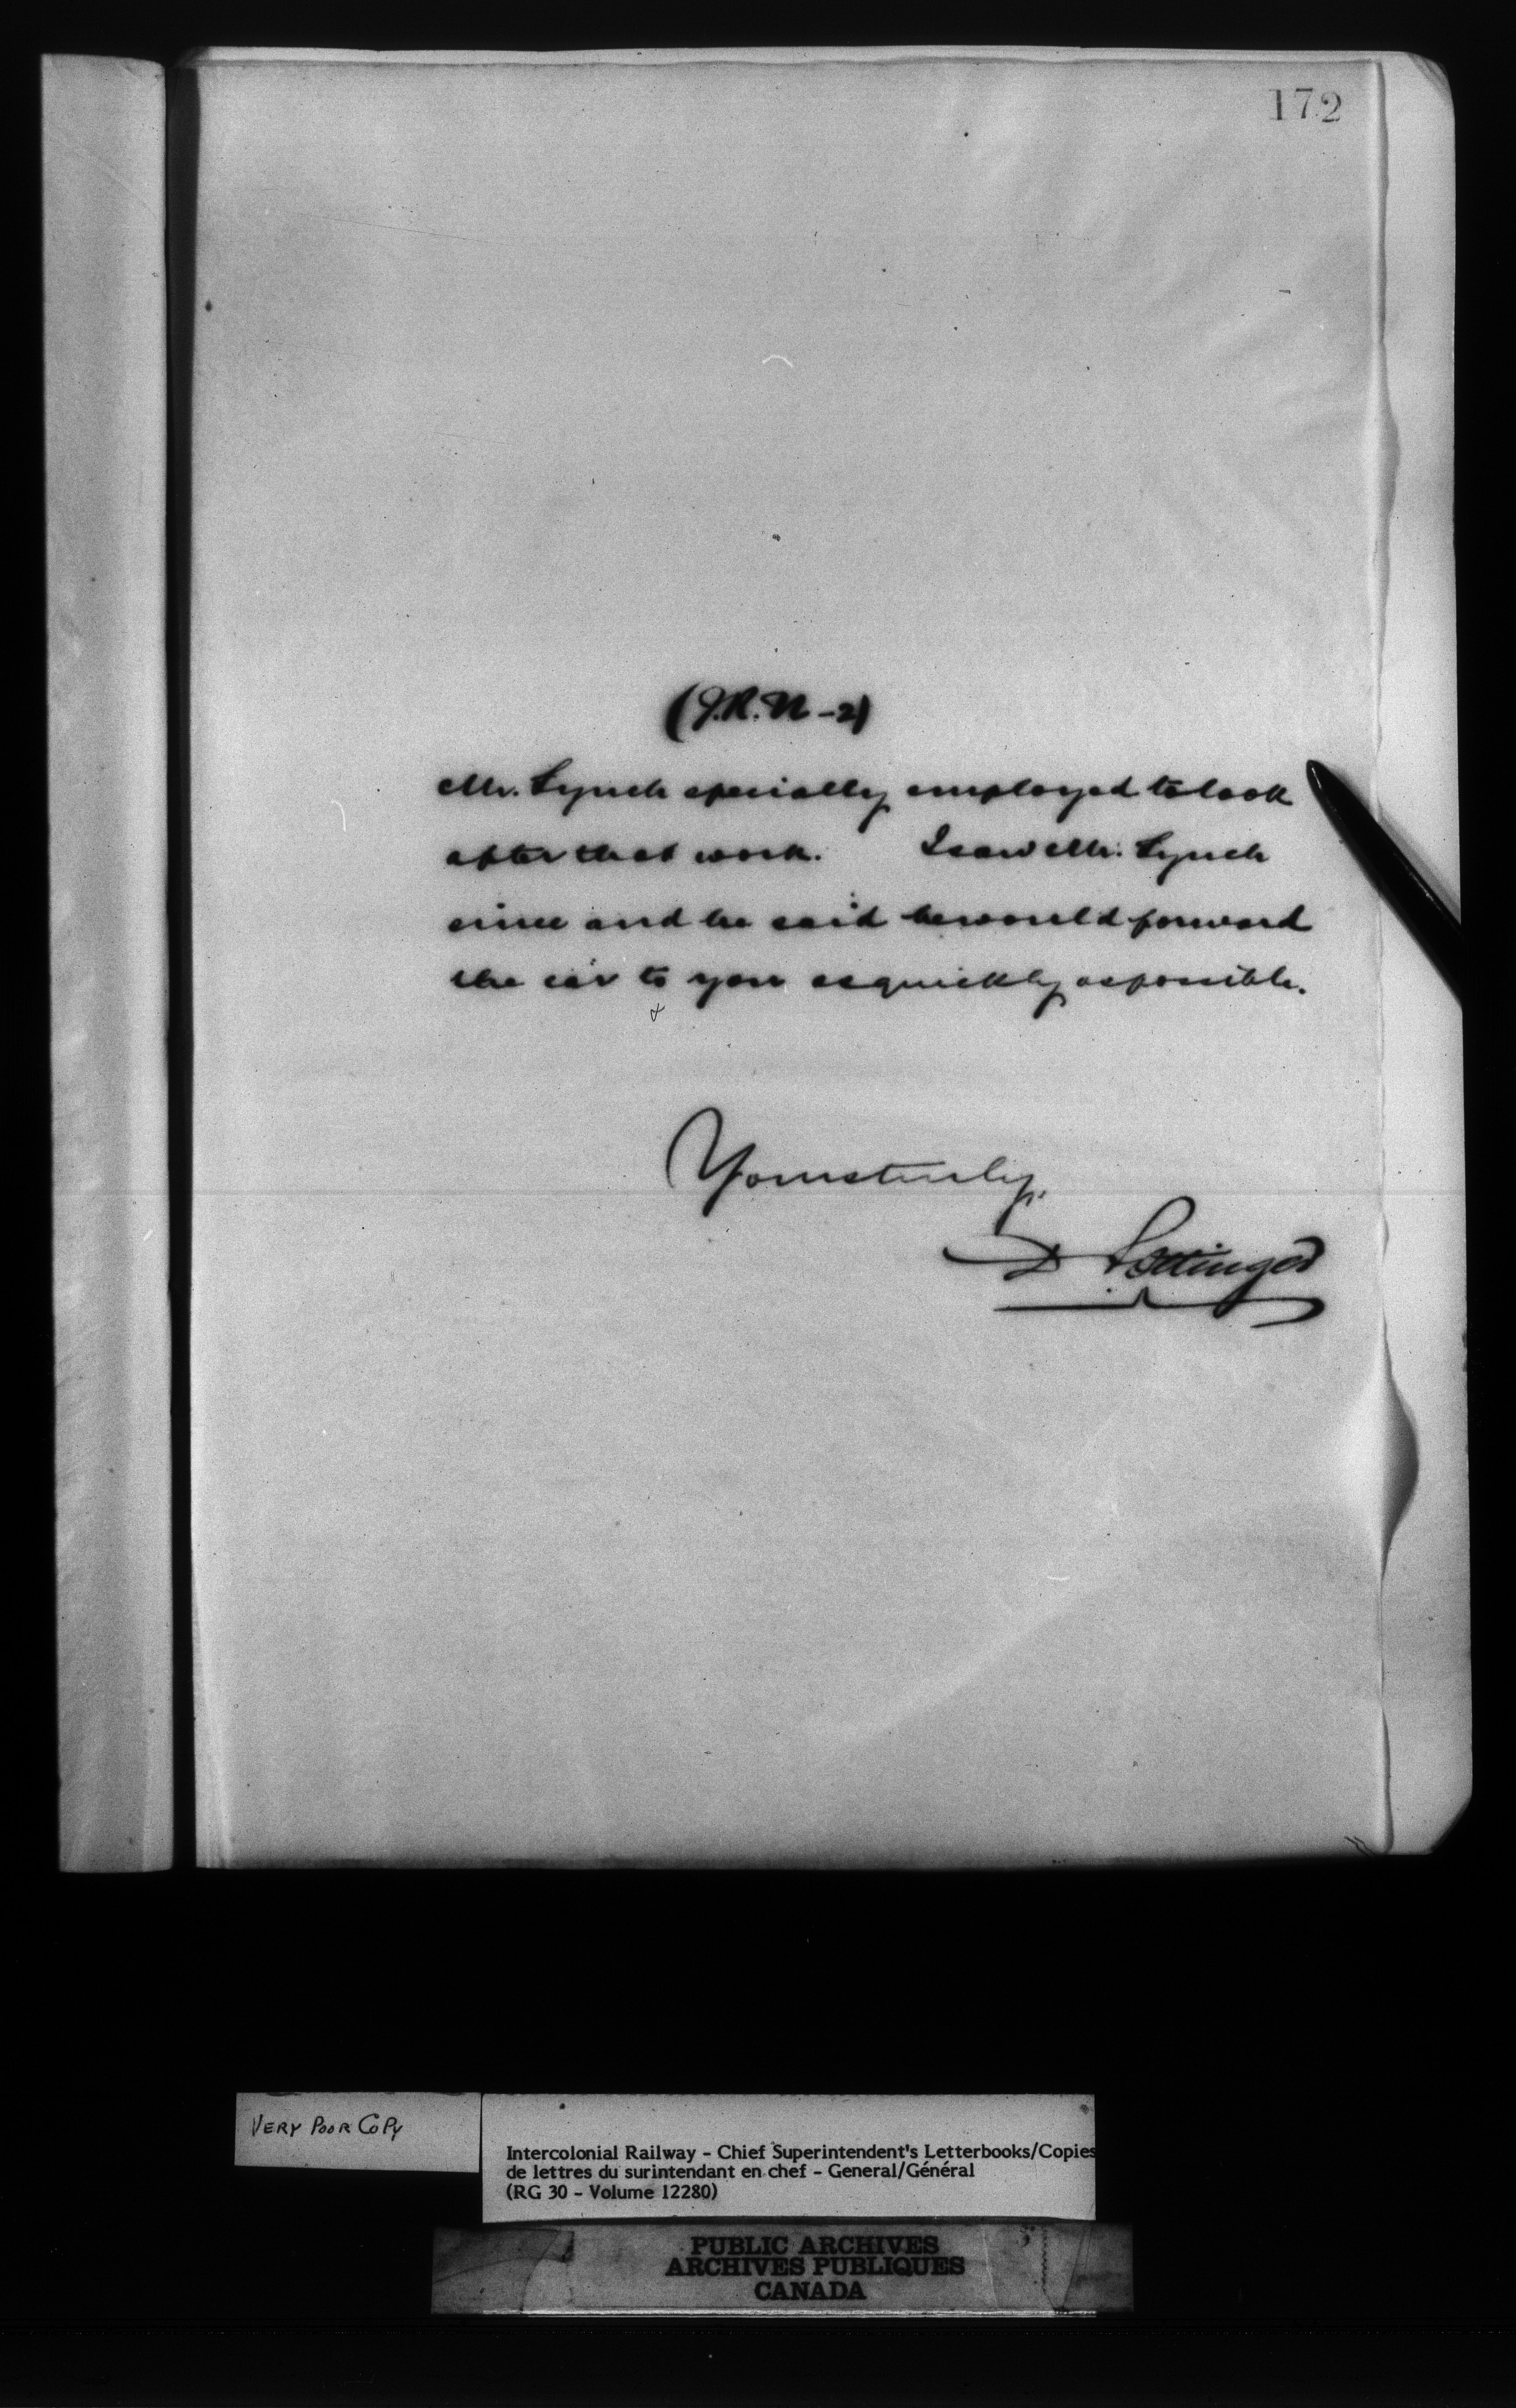 172
(J.R.N-2)
Mr. Lynch specially employed to look
after that work. I saw Mr. Lynch
since and he said he would forward
the car to you as quickly as possible.
Yours truly,
D Pottinger
VERY POOR COPY
Intercolonial Railway - Chief Superintendent's Letterbooks/Copies
de lettres du surintendant en chef - General/Général
(RG 30 - Volume 12280)
PUBLIC ARCHIVES
ARCHIVES PUBLIQUES
CANADA